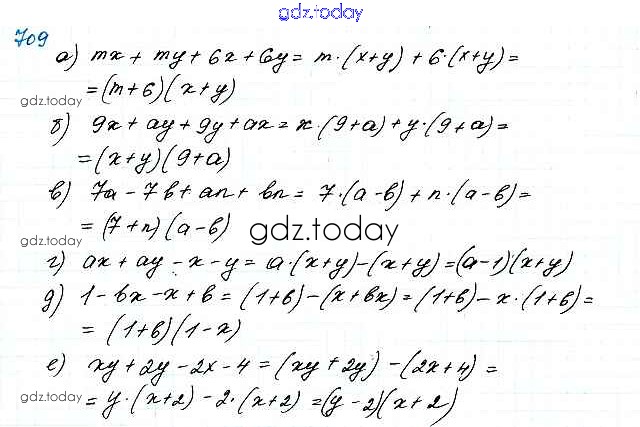 gdz.today
709
а) mx + my + 6x + 6y = m·(x+y) + 6·(x+y) =
= (m+6)(x+y)
gdz.today
б) 9x + ay + 9y + ax = x·(9+a) + y·(9+a) =
= (x+y)(9+a)
gdz.today
в) 7a - 7b + an + bn = 7·(a-b) + n·(a-b) =
= (7+n)(a-b)
gdz.today
gdz.today
г) ax + ay - x - y = a·(x+y) - (x+y) = (a-1)(x+y)
д) 1 - bx - x + b = (1+b) - (x+bx) = (1+b) - x·(1+b) =
= (1+b)(1-x)
gdz.today
е) xy + 2y - 2x - 4 = (xy + 2y) - (2x+4) =
= y·(x+2) - 2·(x+2) = (y-2)(x+2)
gdz.today